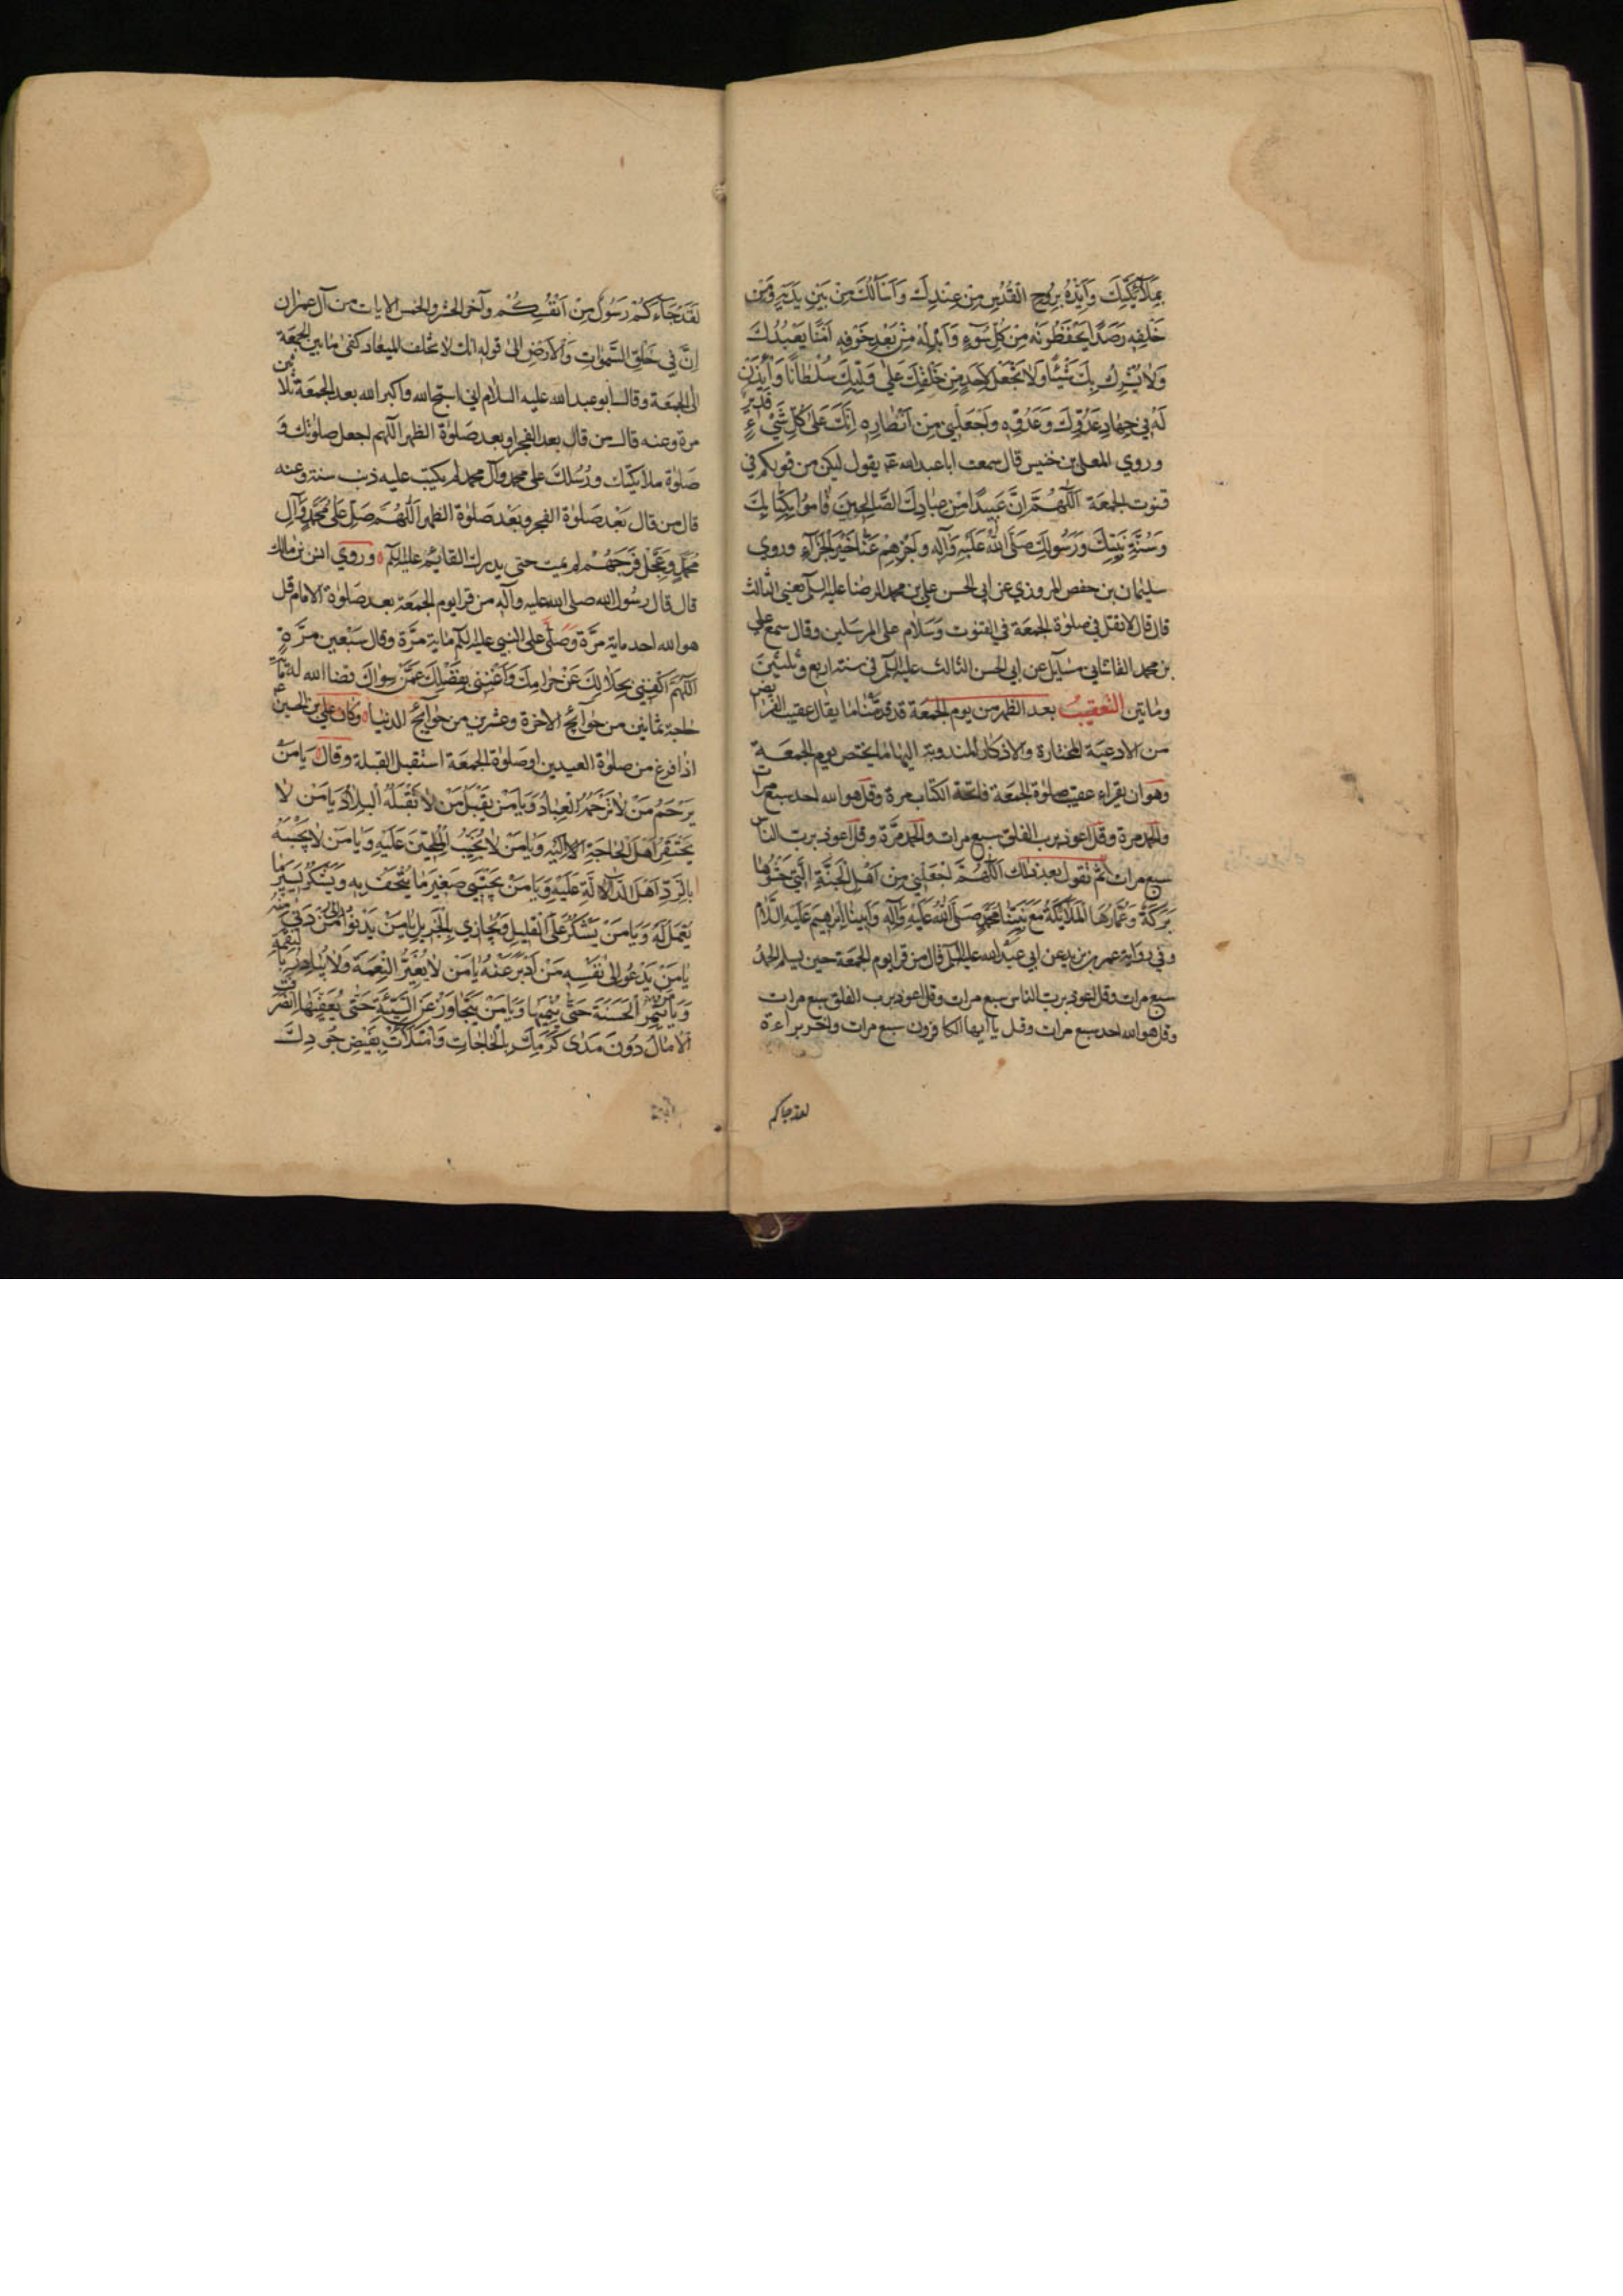 بِمَلَآئِكَتِكَ وَاَيِّدْهُ بِرُوحِ الْقُدُسِ مِنْ عِنْدِكَ وَاَسْأَلُكَ مِنْ بَيْنِ يَدَيْهِ وَمِنْ
خَلْفِهِ رَصَدًا يَحْفَظُونَهُ مِنْ كُلِّ سُوۤءٍ وَاَبْدِلْهُ مِنْ بَعْدِ خَوْفِهِ اَمْنًا يَعْبُدُكَ
وَلَا يُشْرِكُ بِكَ شَيْئًا وَلَا تَجْعَلْ لِاَحَدٍ مِنْ خَلْقِكَ عَلٰى وَلِيِّكَ سُلْطَانًا وَأْذَنْ
لَهُ فِي جِهَادِ عَدُوِّكَ وَعَدُوِّهِ وَاجْعَلْنِي مِنْ اَنْصَارِهِ اِنَّكَ عَلٰى كُلِّ شَيْءٍ قَدِيرٌ
وروي المعلى بن خنيس قال سمعت ابا عبدالله ع يقول ليكن من قولكم في
قنوت الجمعة اَللّٰهُمَّ اِنَّ عَبِيدًا مِنْ عِبَادِكَ الصَّالِحِينَ قَامُوا بِكِتَابِكَ
وَسُنَّةِ نَبِيِّكَ وَرَسُولِكَ صَلَّى اللهُ عَلَيْهِ وَآلِهِ وَاجْزِهِمْ عَنَّا خَيْرَ الْجَزَآءِ وروى
سليمان بن حفص المروزي عن ابي الحسن علي بن محمد الرضا عليه السلم يعني الثالث
قال قال لا تقل في صلوة الجمعة في القنوت وَسَلَام على المرسلين وقال سمع علي
بن محمد القاشاني مسايل عن ابي الحسن الثالث عليه السلم في سنة اربع وثلثين
وماتين التعقيب بعد الظهر من يوم الجمعة قد قدمنا ما يقال عقيب الفرايض
من الادعية المختارة والاذكار المندوبة اليها ما يختص يوم الجمعة
وهو ان يقراء عقيب صلوة الجمعة فاتحة الكتاب مرة وقل هو الله احد سبع مرات
والحمد مرة وقل اعوذ برب الفلق سبع مرات والحمد مرة وقل اعوذ برب الناس
سبع مرات ثم تقول بعد ذلك اَللّٰهُمَّ اجْعَلْنِي مِنْ اَهْلِ الْجَنَّةِ الَّتِي حَشْوُهَا
بَرَكَةٌ وَعُمَّارُهَا الْمَلَائِكَةُ مَعَ نَبِيِّنَا مُحَمَّدٍ صَلَّى اللهُ عَلَيْهِ وَآلِهِ وَاَبِينَا اِبْرٰهِيمَ عَلَيْهِ السَّلَامُ
وفي رواية عمر بن يزيد عن ابي عبدالله عليه السلم قال من قرا يوم الجمعة حين يسلم الحمد
سبع مرات وقل اعوذ برب الناس سبع مرات وقل اعوذ برب الفلق سبع مرات
وقل هو الله احد سبع مرات وقل يا ايها الكافرون سبع مرات واخر براءة
لقد جاءكم
لَقَدْ جَآءَكُمْ رَسُولٌ مِنْ اَنْفُسِكُمْ وآخر الحشر والخمس الايات من آل عمران
اِنَّ فِي خَلْقِ السَّمٰوَاتِ وَالْاَرْضِ الى قوله انك لا تخلف الميعاد كفى ما بين الجمعة
الى الجمعة وقال ابو عبدالله عليه السلام اني اسبح الله واكبر الله بعد الجمعة ثلاثين
مرة وعنه قال من قال بعد الفجر او بعد صَلٰوة الظهر اللهم اجعل صلواتك وَ
صَلٰوة ملائكتك ورُسُلك على محمد وآل محمد لم يكتب عليه ذنب سنة وعنه
قال من قال بَعْد صَلٰوة الفجر وبَعْد صَلٰوة الظهر اَللّٰهُمَّ صَلِّ عَلٰى مُحَمَّدٍ وَّآلِ
مُحَمَّدٍ وَعَجِّلْ فَرَجَهُمْ لم يمت حتى يدرك القائم عليه السلم وروي انس بن مالك
قال قال رسول الله صلى الله عليه وآله من قرا يوم الجمعة بعد صَلٰوة الامام قل
هو الله احد ماية مرَّة وَصَلَّى على النبي عليه السلم ماية مرَّة وقال سَبْعين مرَّةٍ
اَللّٰهُمَّ اكْفِنِي بِحَلَالِكَ عَنْ حَرَامِكَ وَاَغْنِنِي بِفَضْلِكَ عَمَّنْ سِوَاكَ قضا الله له مأة
حاجة ثمانين من حوائج الاخرة وعشرين من حوائج الدنيا وكان علي بن الحسين ع
اذا فرغ من صلوة العيدين او صلوة الجمعة استقبل القبلة وقال يَا مَنْ
يَرْحَمُ مَنْ لَا تَرْحَمُهُ الْعِبَادُ وَيَا مَنْ يَقْبَلُ مَنْ لَا تَقْبَلُهُ الْبِلَادُ يَا مَنْ لَا
يَحْتَقِرُ اَهْلَ الْحَاجَةِ اِلَيْهِ وَيَا مَنْ لَا يُخَيِّبُ الْمُلِحِّينَ عَلَيْهِ وَيَا مَنْ لَا يَجْبَهُ
بِالرَّدِّ اَهْلَ الدَّالَّةِ عَلَيْهِ وَيَا مَنْ يَجْتَبِي صَغِيرَ مَا يُتْحَفُ بِهِ وَيَشْكُرُ يَسِيرَ مَا
يُعْمَلُ لَهُ وَيَا مَنْ يَشْكُرُ عَلَى الْقَلِيلِ وَيُجَازِي بِالْجَزِيلِ يَا مَنْ يَدْنُو اِلٰى مَنْ دَنٰى مِنْهُ
يَا مَنْ يَدْعُو اِلٰى نَفْسِهِ مَنْ اَدْبَرَ عَنْهُ يَا مَنْ لَا يُغَيِّرُ النِّعْمَةَ وَلَا يُبَادِرُ بِالنِّقْمَةِ
وَيَا مَنْ يُثْمِرُ الْحَسَنَةَ حَتّٰى يُنْمِيَهَا وَيَا مَنْ يَتَجَاوَزُ عَنِ السَّيِّئَةِ حَتّٰى يُعَفِّيَهَا انْصَرَفَتِ
الْاٰمَالُ دُونَ مَدٰى كَرَمِكَ بِالْحَاجَاتِ وَامْتَلَأَتْ بِفَيْضِ جُودِكَ